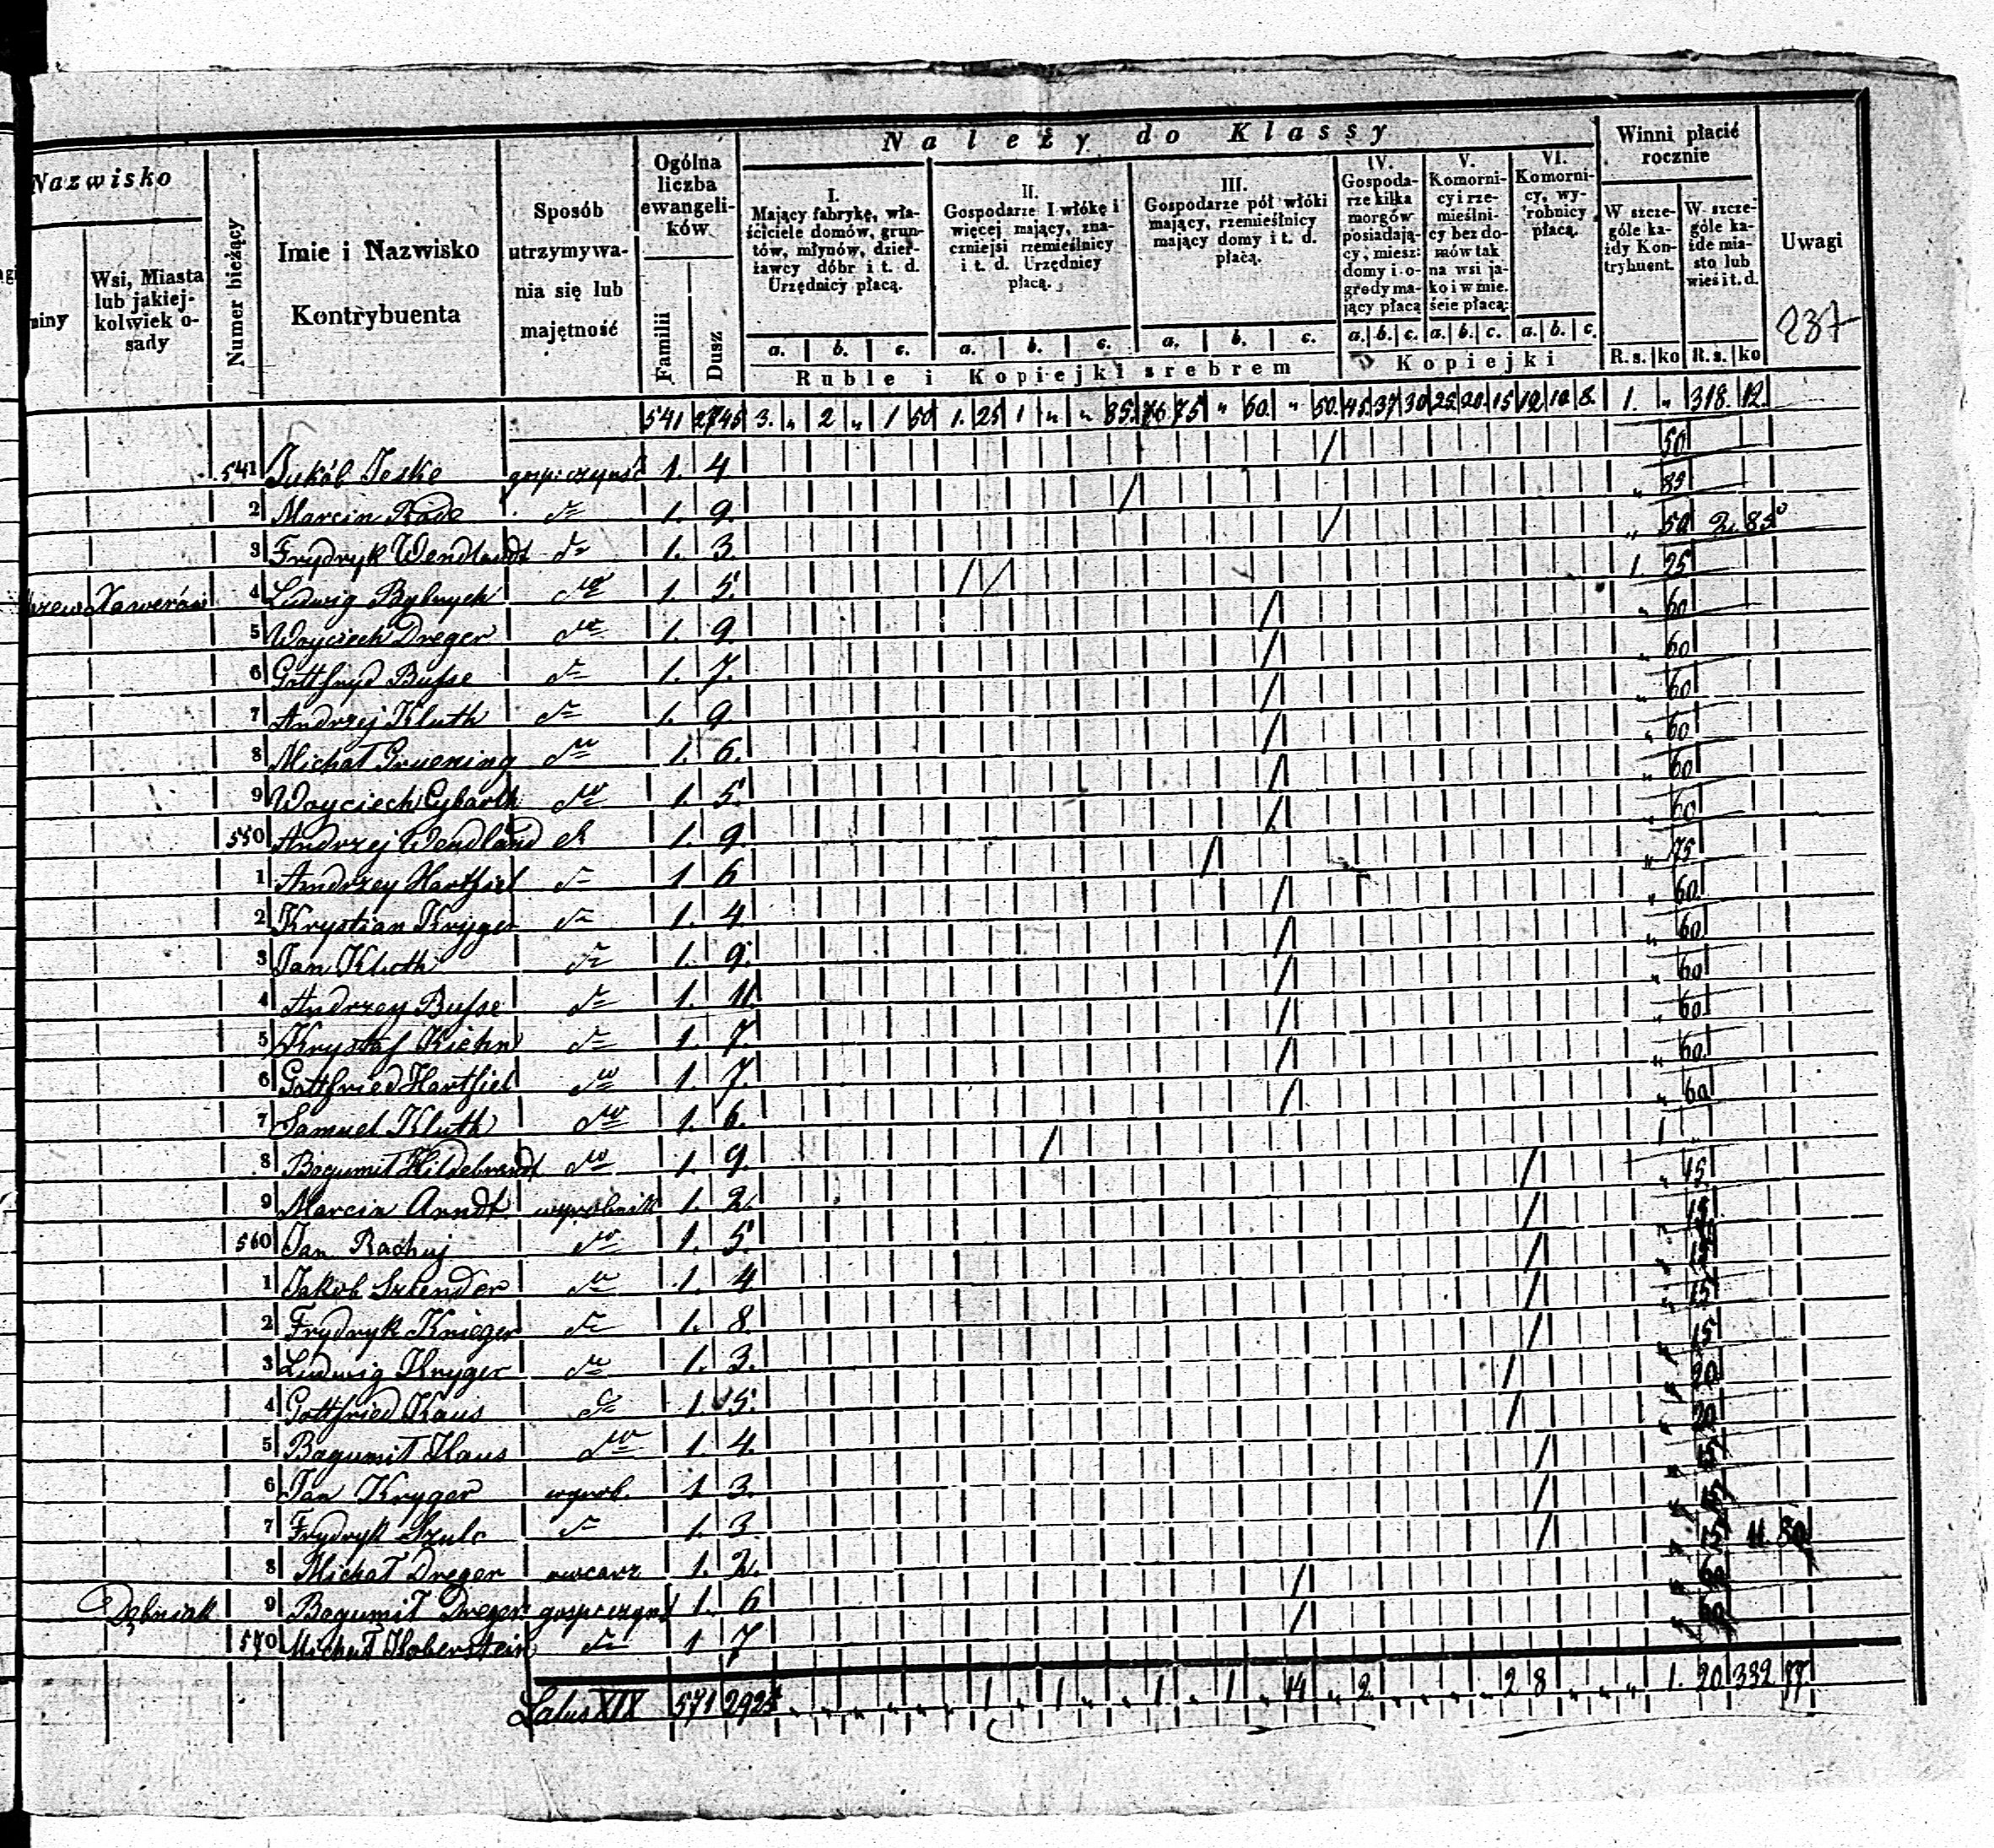 Nazwisko
Wsi, Miasta
lub jakiej-
kolwiek o-
sady
Numer bieżący
Imie i Nazwisko
Kontrybuenta
Sposób
utrzymywa-
nia się lub
majętność
Ogólna
liczba
ewangeli-
ków
Familii
Dusz
Należy do Klassy
I.
Mający fabrykę, wła-
ściciele domów, grun-
tów, młynów, dzier-
żawcy dóbr i t. d.
Urzędnicy płacą.
II.
Gospodarze I włókę i
więcej mający, zna-
czniejsi rzemieślnicy
i t. d. Urzędnicy
płacą.
III.
Gospodarze pół włóki
mający, rzemieślnicy
mający domy i t. d.
płacą.
IV.
Gospoda-
rze kilka
morgów
posiadają-
cy, miesz:
domy i o-
grody ma-
jący płacą
V.
Komorni-
cy i rze-
mieślni-
cy bez do-
mów tak
na wsi ja-
ko i w mie.
ście płacą:
VI.
Komorni-
cy, wy-
robnicy
płacą.
a. b. c. a. b. c. a. b. c. a. b. c. a. b. c. a. b. c.
Ruble i Kopiejki srebrem
Kopiejki
Winni płacić
rocznie
W szcze-
góle ka-
żdy Kon-
trybuent.
W szcze-
góle ka-
żde mia-
sto lub
wieś i t. d.
R. s. ko R. s. ko
Uwagi
237
541 2745 3. „ 2 „ 1 50 1. 25 1 „ „ 85. 75 „ 60. „ 50. 45. 37 30 25 20. 15 12 10 8. 1. „ 318. 12.
541 Jakób Jeske 1. 4. 50
2 Marcin Rade 1. 9. „ 85
3 Frydryk Wendlandt 1. 3. „ 50 2. 85
Xawerów 4 Ludwig 1. 5. 1. 25
5 Woyciech Dreger 1. 9. „ 60
6 Gottfryd Busse 1. 7. „ 60
7 Andrzej Kluth 1. 9. „ 60
8 Michał Gruening 1. 6. „ 60
9 Woyciech Cybarth 1. 5. „ 60
550 Andrzej Wendland 1. 9. 60
1 Andrzey Hartfiel 1 6 „ 75
2 Krystian Kryger 1. 4. „ 60.
3 Jan Kluth 1. 9. „ 60
4 Andrzey Busse 1. 11 „ 60
5 Krysztof Kiehn 1. 7. „ 60
6 Gottfried Hartfiel 1. 7. „ 60.
7 Samuel Kluth 1. 6. „ 60
8 Bogumił Hildebrandt 1. 9. 1 „
9 Marcin Arndt wyrobnik 1. 2. „ 15.
560 Jan Raduj 1. 5. 15
1 Jakob Szlender 1. 4 15
2 Frydryk Krieger 1. 8. „ 15
3 Ludwig Kryger 1. 3. „ 15
4 Gottfried Kaus 1. 5. „ 20
5 Bogumił Kaus 1. 4. „ 20
6 Jan Kryger wyrob. 1 3. 15
7 Frydryk Szulc 1. 3 15
8 Michał Dreger owczarz 1. 2. „ 15 11. 80
Dębniak 9 Bogumił Dreger 1. 6 60
570 Michał Haberstein 1 7 „ 60
Latus XIX 571 2925 1 „ 1 „ 1 „ 1 „ 14 „ 2. 2 8 „ „ 1. 20 332 77.